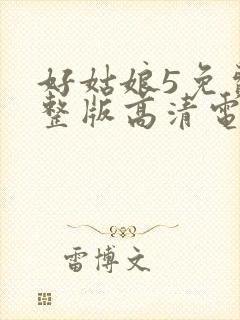 好姑娘5免
整版高清电
雷博文